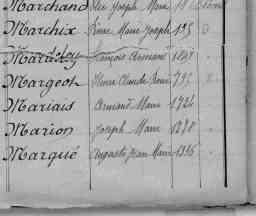 Marchand Joseph Marie
Marchix Pierre Marie Joseph 125
Marêchey François Armand 1847
Margeot Pierre Claude René 795
Mariais Armand Marie 1724
Marion Joseph Marie 1278
Marqué Auguste Jean Marie 1365